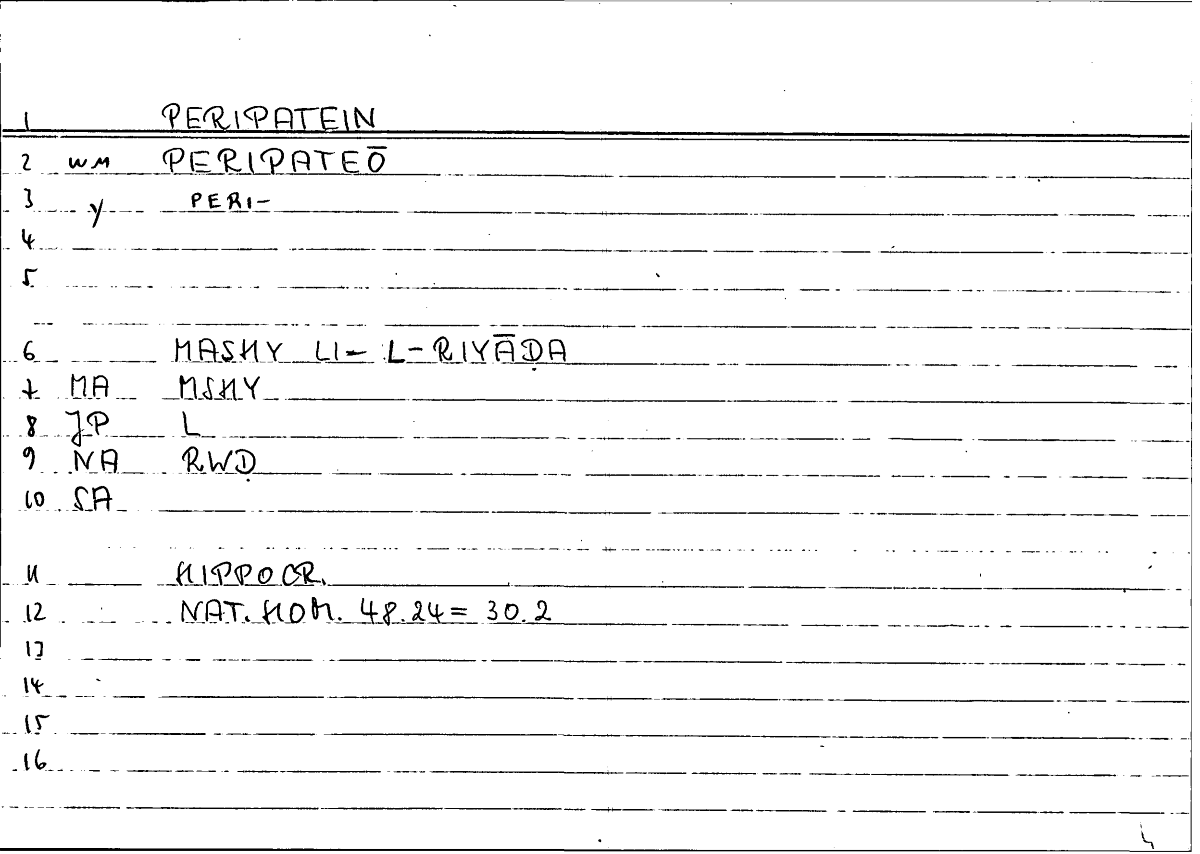 1 PERIPATEIN
2 WM PERIPATEŌ
3 Y PERI-
4
5
6 MASHY LI- L-RIYĀḌA
7 MA MSHY
8 JP L
9 NA RWḌ
10 SA
11 HIPPOCR.
12 NAT. HOM. 48.24 = 30.2
13
14
15
16